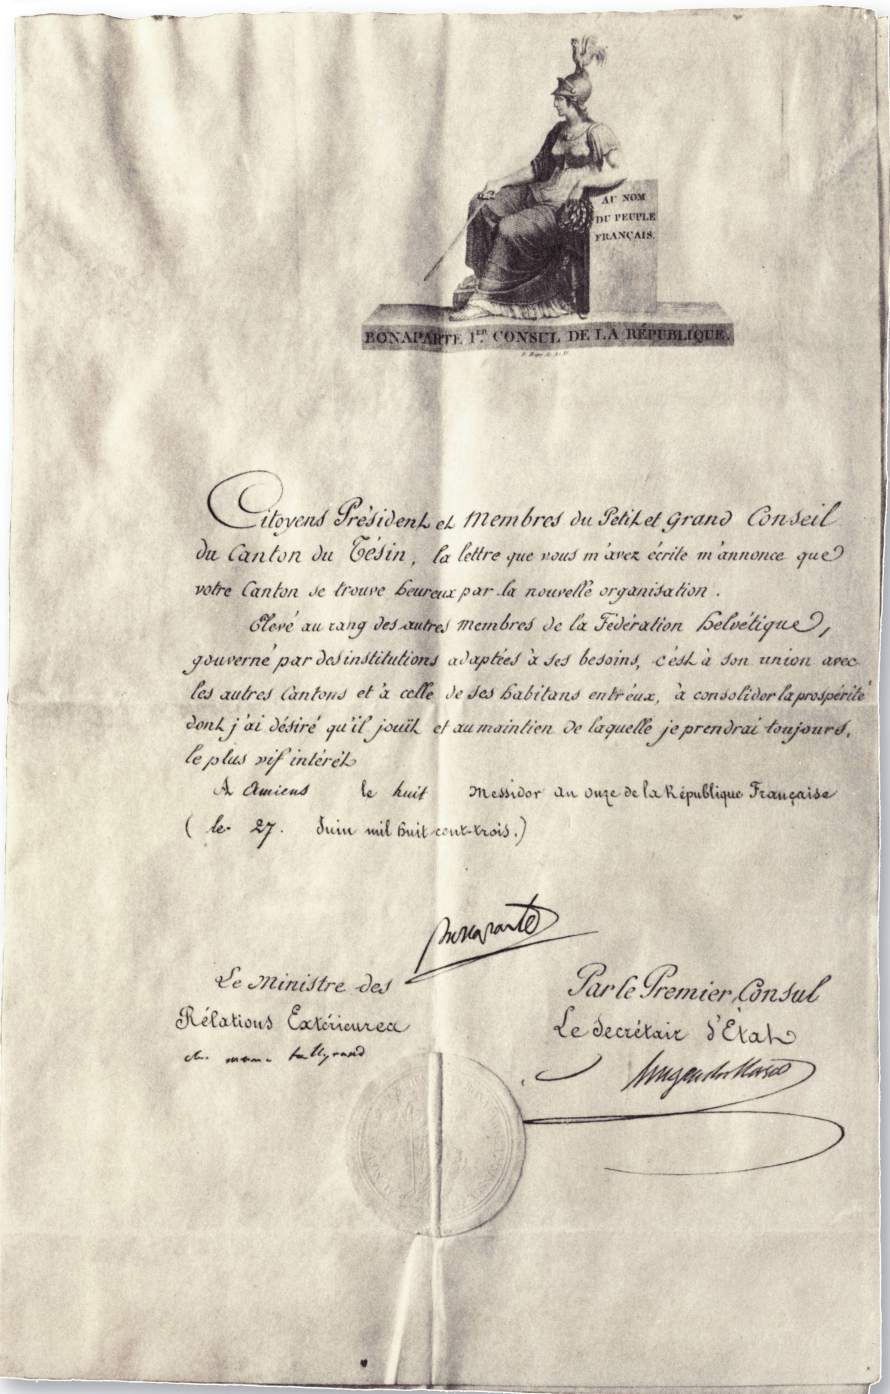 AU NOM
DU PEUPLE
FRANÇAIS.
BONAPARTE 1ER. CONSUL DE LA RÉPUBLIQUE.
Citoyens Président et Membres du Petit et Grand Conseil
du Canton du Tésin, la lettre que vous m'avez écrite m'annonce que
votre Canton se trouve heureux par la nouvelle organisation.
Elevé au rang des autres membres de la Fédération helvétique,
gouverné par des institutions adaptées à ses besoins, c'est à son union avec
les autres Cantons et à celle de ses habitans entr'eux, à consolider la prospérité
dont j'ai désiré qu'il jouît et au maintien de laquelle je prendrai toujours,
le plus vif intérêt
A Amiens le huit Messidor an onze de la République Française
( le 27. Juin mil huit cent-trois.)
Bonaparte
Le Ministre des
Rélations Extérieures
Par le Premier Consul
Le Secrétair d'Etat
ch. mau. talleyrand
hugues b. Maret